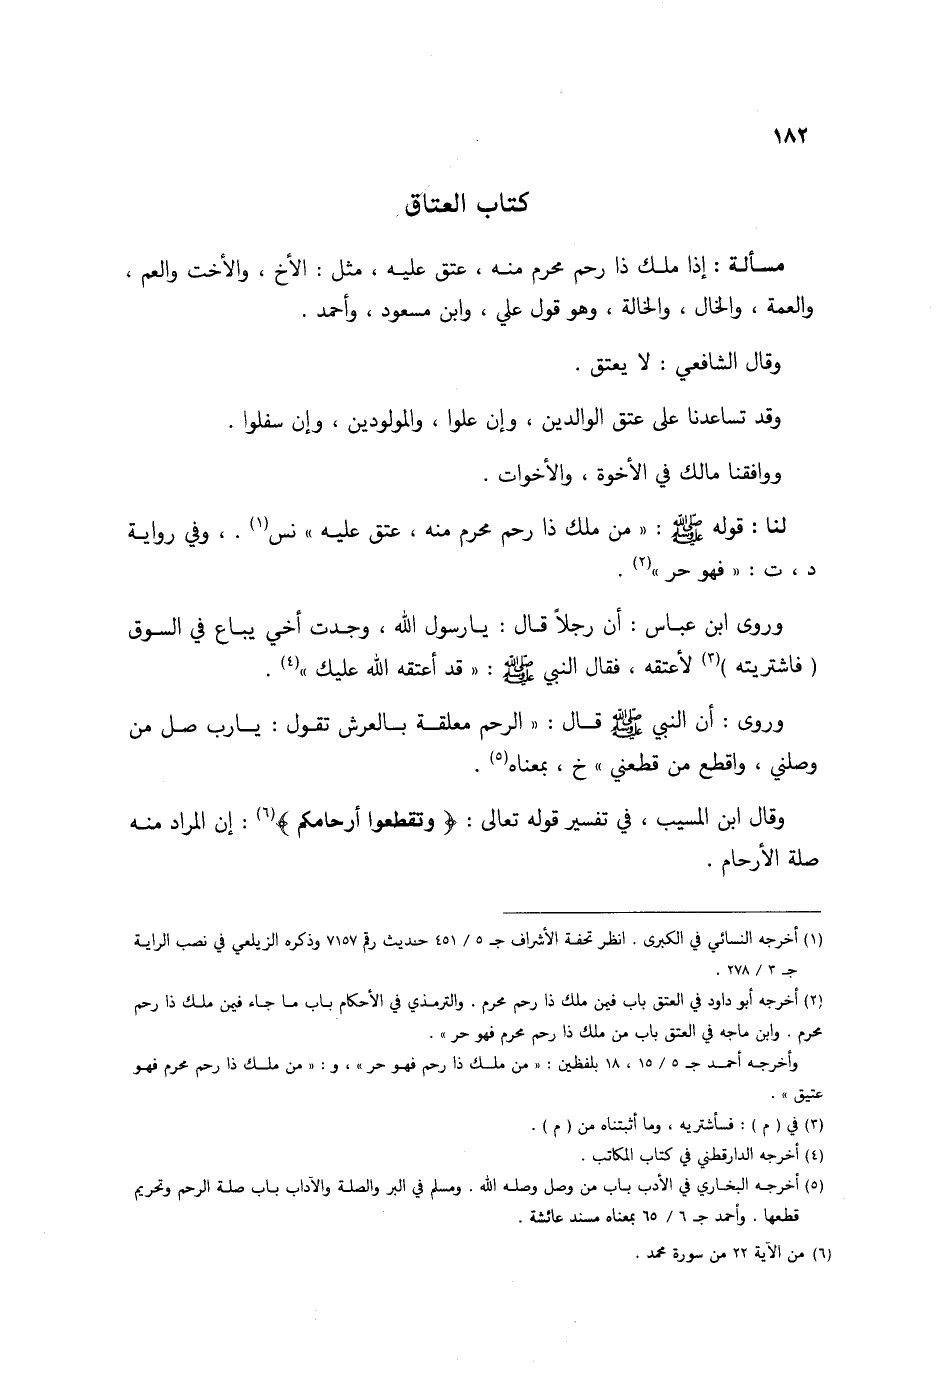 ١٨٢
كتاب العتاق
مسألة : إذا ملك ذا رحم محرم منه ، عتق عليه ، مثل : الأخ ، والأخت والعم ،
والعمة ، والخال ، والخالة ، وهو قول علي ، وابن مسعود ، وأحمد .
وقال الشافعي : لا يعتق .
وقد تساعدنا على عتق الوالدين ، وإن علوا ، والمولودين ، وإن سفلوا .
ووافقنا مالك في الأخوة ، والأخوات .
لنا : قوله ﷺ : « من ملك ذا رحم محرم منه ، عتق عليه » نس(١) . ، وفي رواية
د ، ت : « فهو حر »(٢) .
وروى ابن عباس : أن رجلاً قال : يارسول الله ، وجدت أخي يباع في السوق
( فاشتريته )(٣) لأعتقه ، فقال النبي ﷺ : « قد أعتقه الله عليك »(٤) .
وروى : أن النبي ﷺ قال : « الرحم معلقة بالعرش تقول : يارب صل من
وصلني ، واقطع من قطعني » خ ، بمعناه(٥) .
وقال ابن المسيب ، في تفسير قوله تعالى : ﴿ وتقطعوا أرحامكم ﴾(٦) : إن المراد منه
صلة الأرحام .
(١) أخرجه النسائي في الكبرى . انظر تحفة الأشراف جـ ٥ / ٤٥١ حديث رقم ٧١٥٧ وذكره الزيلعي في نصب الراية
جـ ٣ / ٢٧٨ .
(٢) أخرجه أبو داود في العتق باب فين ملك ذا رحم محرم . والترمذي في الأحكام باب ما جاء فين ملك ذا رحم
محرم . وابن ماجه في العتق باب من ملك ذا رحم محرم فهو حر » .
وأخرجه أحمد جـ ٥ / ١٥ ، ١٨ بلفظين : « من ملك ذا رحم فهو حر » ، و : « من ملك ذا رحم محرم فهو
عتيق » .
(٣) في ( م ) : فسأشتريه ، وما أثبتناه من ( م ) .
(٤) أخرجه الدارقطني في كتاب المكاتب .
(٥) أخرجه البخاري في الأدب باب من وصل وصله الله . ومسلم في البر والصلة والآداب باب صلة الرحم وتحريم
قطعها . وأحمد جـ ٦ / ٦٥ بمعناه مسند عائشة .
(٦) من الآية ٢٢ من سورة محمد .